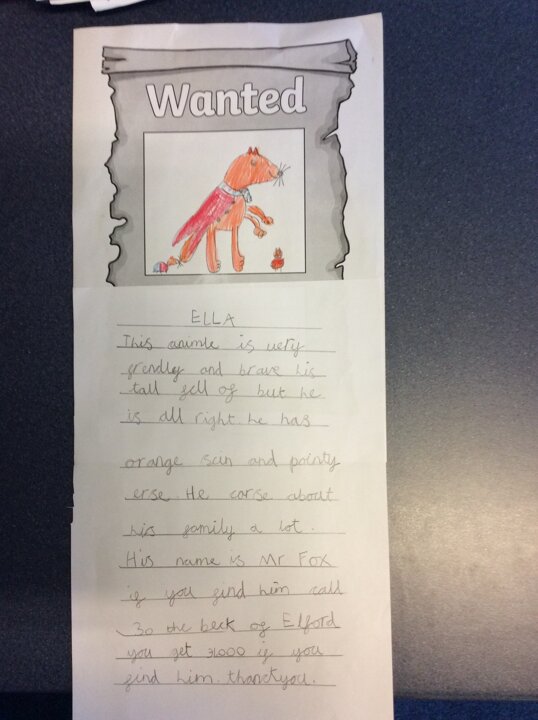 Wanted
ELLA
This animle is very
frendley and brave his
tall fell of but he
is all right. he has
orange scin and pointy
erse. He carse about
his family a lot.
His name is Mr Fox
if you find him call
30 the beck of Elford
you get 31000 if you
find him. thanckyou.